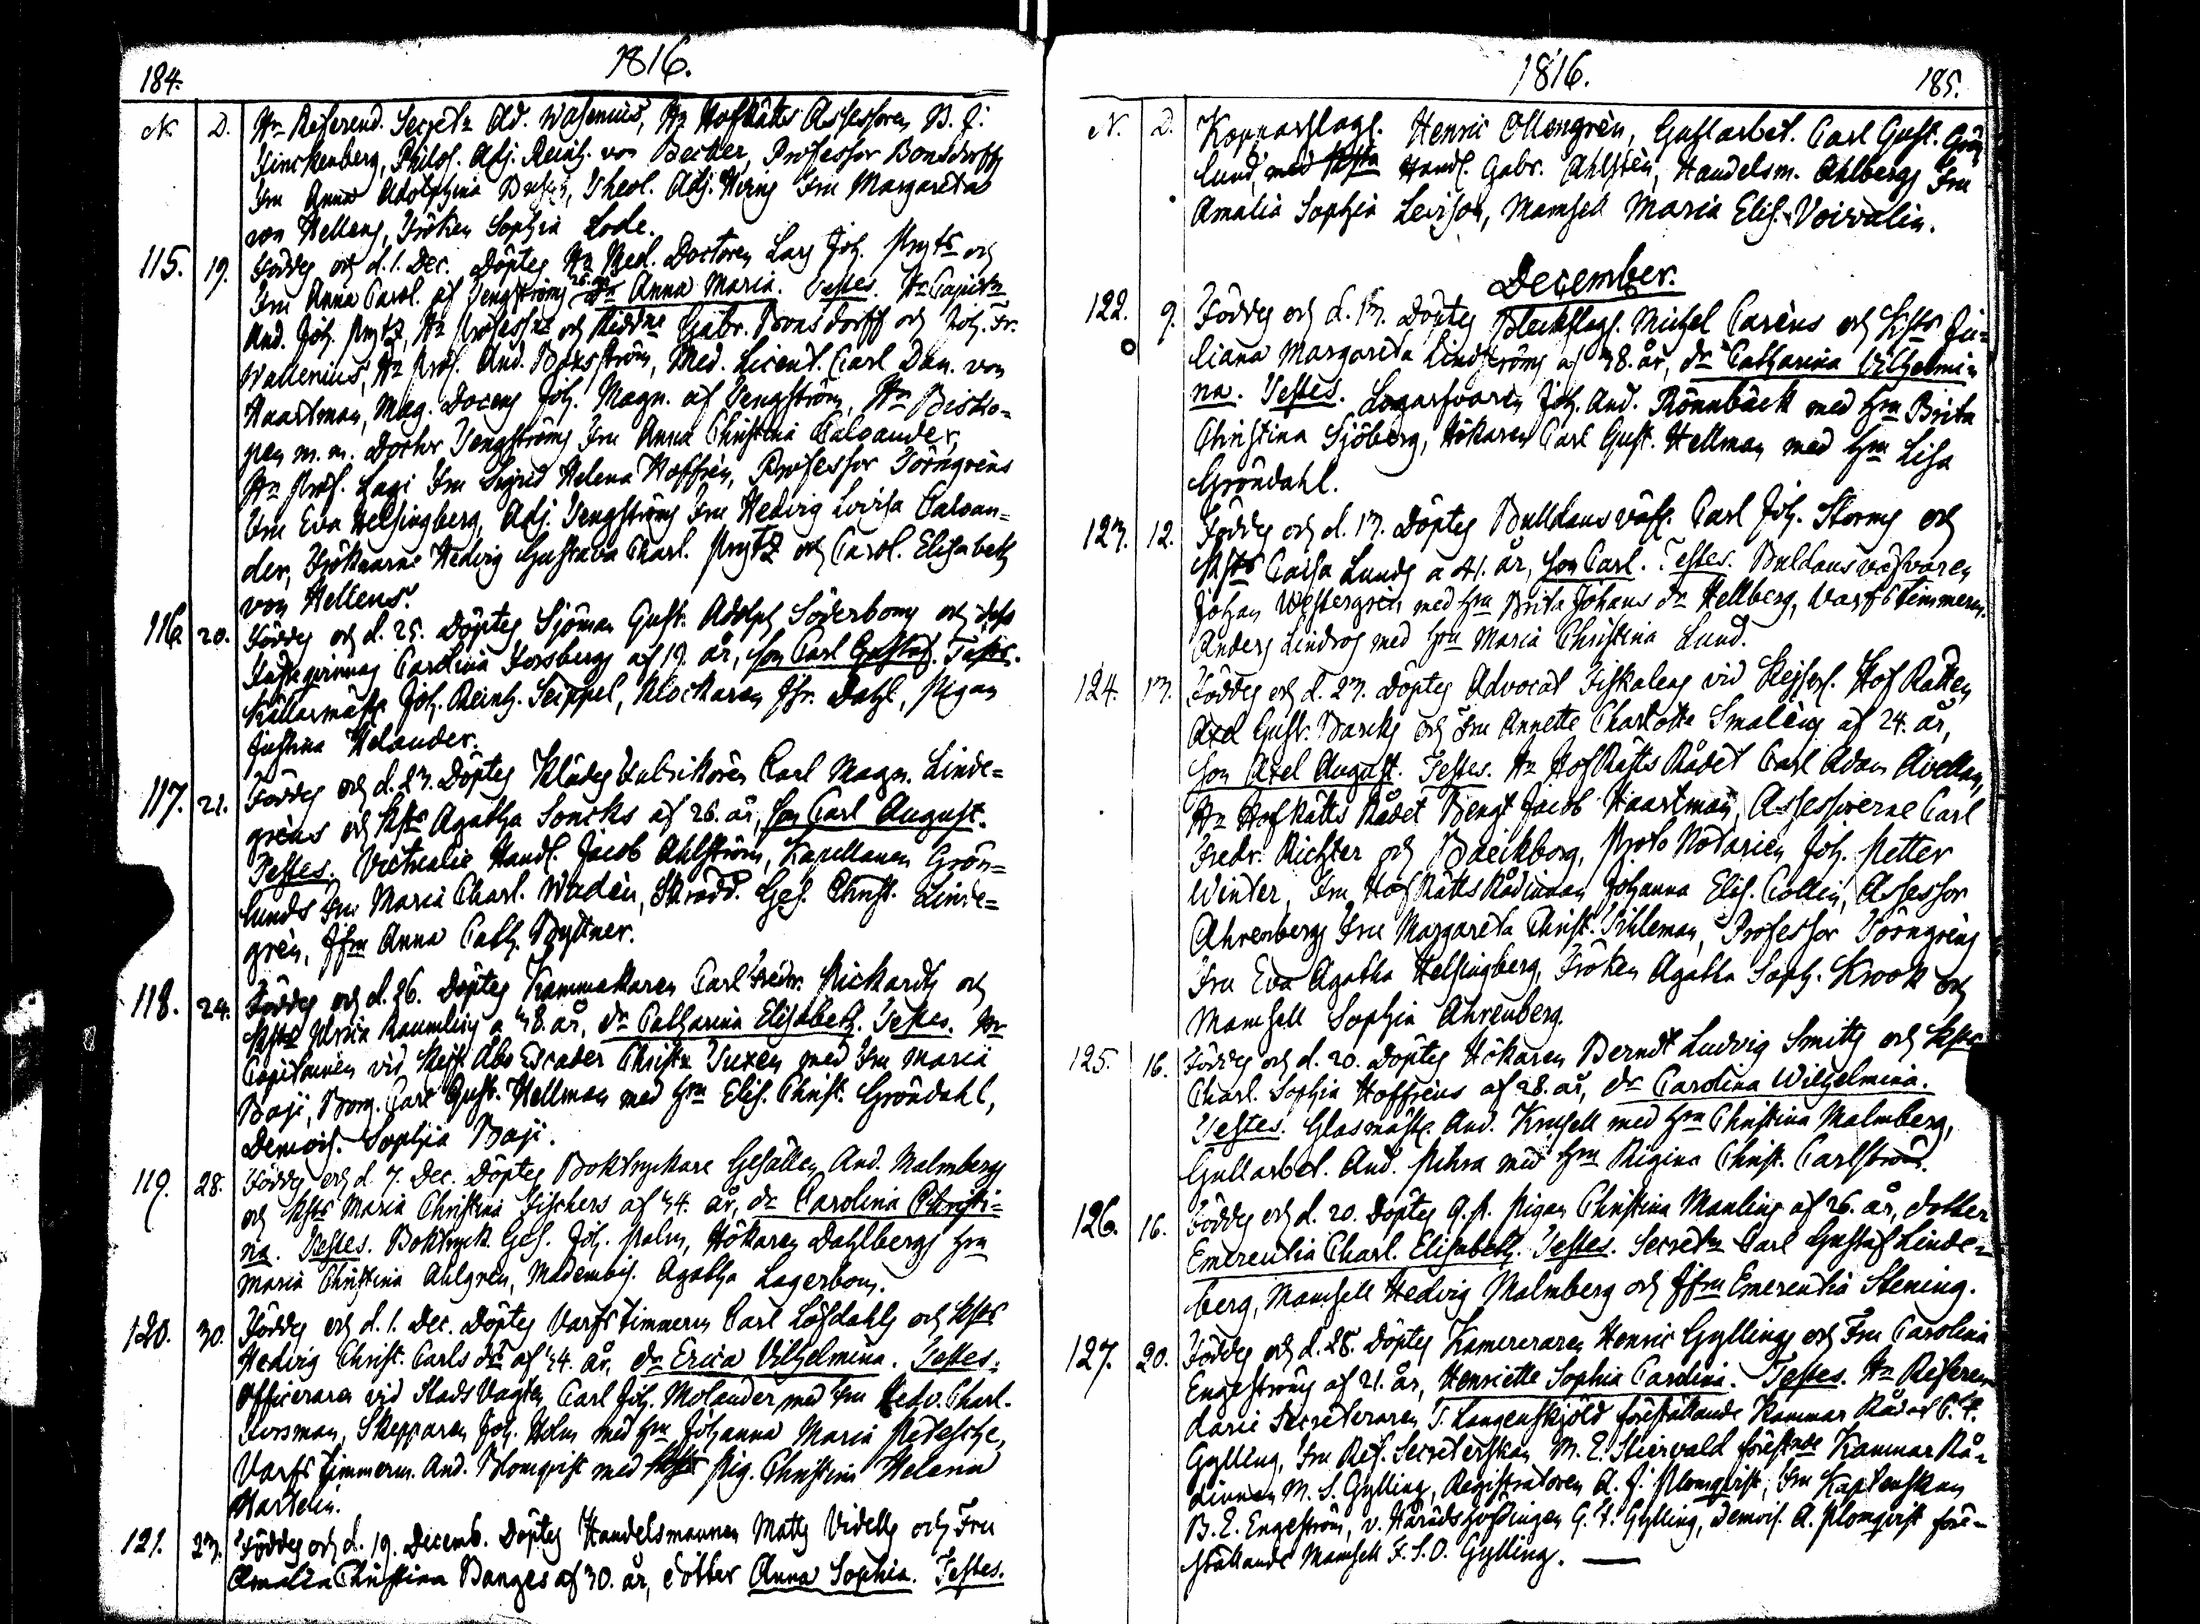 184.
1816.
N. D. Hr Referend. Secret:n Ad. Wasenius, Hr HofRätts Assessoren B. J.
Finckenberg, Philos. Adj. Reinh. von Becker, Professor Bonsdorffs
Fru Anna Adolphina, Theol. Adj. Fru Margareta
von Hellens, Fröken Sophia Lode.
115. 19. Föddes och d. 1. Dec. Döptes Hr Med. Doctoren Lars Joh. Prytz och
Fru Anna Carol. af Tengströms 26. år Dr Anna Maria. Testes. Hr
And. Joh. Prytz, Hr Professor och Riddne Gabr. Bonsdorff och Joh. Fr.
Wallenius, Hr Prof. And. Boxström, Med. Licent. Carl Dan. von
Haartman, Mag. Docens Joh. Magn. af Tengström, Hr Bisko=
pen m. m. Doctor Tengströms Fru Anna Christina Caloander,
Hr Prof. Fru Sigrid Helena Hoffrén, Professor Törngréns
Fru Eva Helsingberg, Adj. Tengströms Fru Hedvig Lovisa Caloan=
der, Fröknarne Hedvig Gustava Charl. Prytz och Carol. Elisabeth
von Hellens.
116. 20. Föddes och d. 25. Döptes Sjöman Gust. Adolph Söderbom och dess
Carolina Forsbergs af 19. år, Son Carl Gustaf. Testes.
Källarmäst. Joh. Reinh. Seippel, Klockaren Dahl, Pigan
Justina Helander.
117. 21. Föddes och d. 23. Döptes Klädes Fabrikören Carl Magn. Linde=
gréns och Hstr Agatha Soncks af 26. år, Son Carl August.
Testes. Victualie Handl. Jacob Ahlström, Kapellanen Grön=
lunds Fru Maria Charl. Wadén, Skrädd. Ges. Christ. Linde=
grén, Jfrn Anna Cath. Byttner.
118. 24. Föddes och d. 26. Döptes Kammakaren Carl Fredr. Rickards och
Hstr Ulrica Raumlins a 38. år, dr Catharina Elisabeth. Testes. Hr
Capitainen vid Kejs. Åbo Escader Christn Tuxen med Fru Maria
Baji, Borg. Carl Gust. Hellman med Hru Elis. Christ. Gröndahl,
Demois. Sophia Baji.
119. 28. Föddes och d. 7. Dec. Döptes Boktryckare Gesällen And. Malmbergs
och Hstr Maria Christina Fischers af 34. år, dr Carolina Christi=
na. Testes. Boktryck. Ges. Joh. Malm, Hökaren Dahlbergs Hru
Maria Christina Ahlgren, Mademois. Agatha Lagerbom.
120. 30. Föddes och d. 1. Dec. Döptes Varfs timmerm Carl Löfdahls och Hstrs
Hedvig Christ. Carls dr af 34. år, dr Erica Vilhelmina. Testes.
Officeraren vid Stads Vagten Carl Joh. Molander med Fru Hedv. Charl.
Forsman, Skepparen Joh. Holm med Hru Johanna Maria
Varfs Timmerm. And. Blomqvist med Pig. Christina Helena
Hartelin.
121. 23. Föddes och d. 19. Decemb. Döptes Handelsmannen Matts Vidells och Fru
Amalia Christina Banges af 30. år, dotter Anna Sophia. Testes.
1816.
185.
N. D. Kopparslag. Henric Ollongrén, Gullarbet. Carl Gust. Grön
lund, Handl. Gabr. Ahlstén, Handelsm. Ahlbergs Fru
Amalia Sophia Levison, Mamsell Maria Elis. Voivalin.
December.
122. 9. Föddes och d. 13. Döptes Bleckslag. Michel Caréns och Hstr Ju=
liana Margareta Lindströms af 38. år, dr Catharina Vilhelmi=
na. Testes. Logarfvaren Joh. And. Rönnbäck med Hru Brita
Christina Sjöberg, Hökaren Carl Gust. Hellman med Hru Lisa
Gröndahl.
123. 12. Föddes och d. 13. Döptes Bulldansväf. Carl Joh. Storms och
Hstrs Caisa Lunds a 41. år, Son Carl. Testes. Buldansväfvaren
Johan Westergrén med Hru Brita Johans dr Hellberg, Varfs timmerm.
Anders Lindros med Hru Maria Christina Lund.
124. 13. Föddes och d. 23. Döptes Advocat Fiskalens vid Kejserl. Hof Rätten
Axel Gust. Barcks och Fru Annette Charlotta Smaléns af 24. år,
Son Axel August. Testes. Hr HofRätts Rådet Carl Adam Avellan,
Hr HofRätts Rådet Bengt Jacob Haartman, Assessorerne Carl
Fredr. Richter och Bäckborg, Proto Notarien Joh. Petter
Winter, Fru HofRättsRådinnan Johanna Elis. Collin, Assessor
Ahrenbergs Fru Margareta Christ. Tihleman, Professor Törngréns
Fru Eva Agatha Helsingberg, Fröken Agatha Soph. Krook och
Mamsell Sophia Ahrenberg.
125. 16. Föddes och d. 20. Döptes Hökaren Berndt Ludvig Smitts och Hstrs
Charl. Sophia Hoffréns af 28. år, dr Carolina Wilhelmina.
Testes. Glasmäst. And. Krusell med Hru Christina Malmberg,
Gullarbet. And. Pihra med Hru Regina Christ. Carlström.
126. 16. Föddes och d. 20. Döptes Q. P. Pigan Christina Manlins af 26. år, dotter
Emerentia Charl. Elisabeth. Testes. Secretn Carl Gustaf Linde=
berg, Mamsell Hedvig Malmberg och Jfru Emerentia Stening.
127. 20. Föddes och d. 28. Döptes Kamereraren Henric Gyllings och Fru Carolina
Engeströms af 21. år, Henriette Sophia Carolina. Testes. Hr Referen
darie Secreteraren T. Langenskjöld föreställande Kammar Rådet C. F.
Gylling, Fru Ref. Secreterskan M. E. Stiervald förestde Kammar Rå=
dinnan M. S. Gylling, Registratoren A. J. Plomqvist, Fru Kaptenskan
B. E. Engeström, v. Häradshöfdingen G. F. Gylling, Demois. A. Plomqvist före=
ställande Mamsell F. S. O. Gylling.